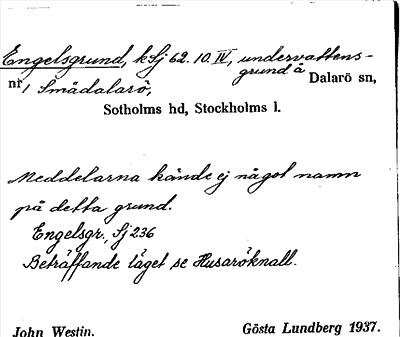 Engelsgrund, kSj 62. 10. IV, undervattens-
grund å Dalarö sn,
nr 1 Smådalarö,
Sotholms hd, Stockholms l.
Meddelarna kände ej något namn
på detta grund.
Engelsgr., Sj 236
Beträffande läget se Husaröknall.
John Westin. Gösta Lundberg 1937.